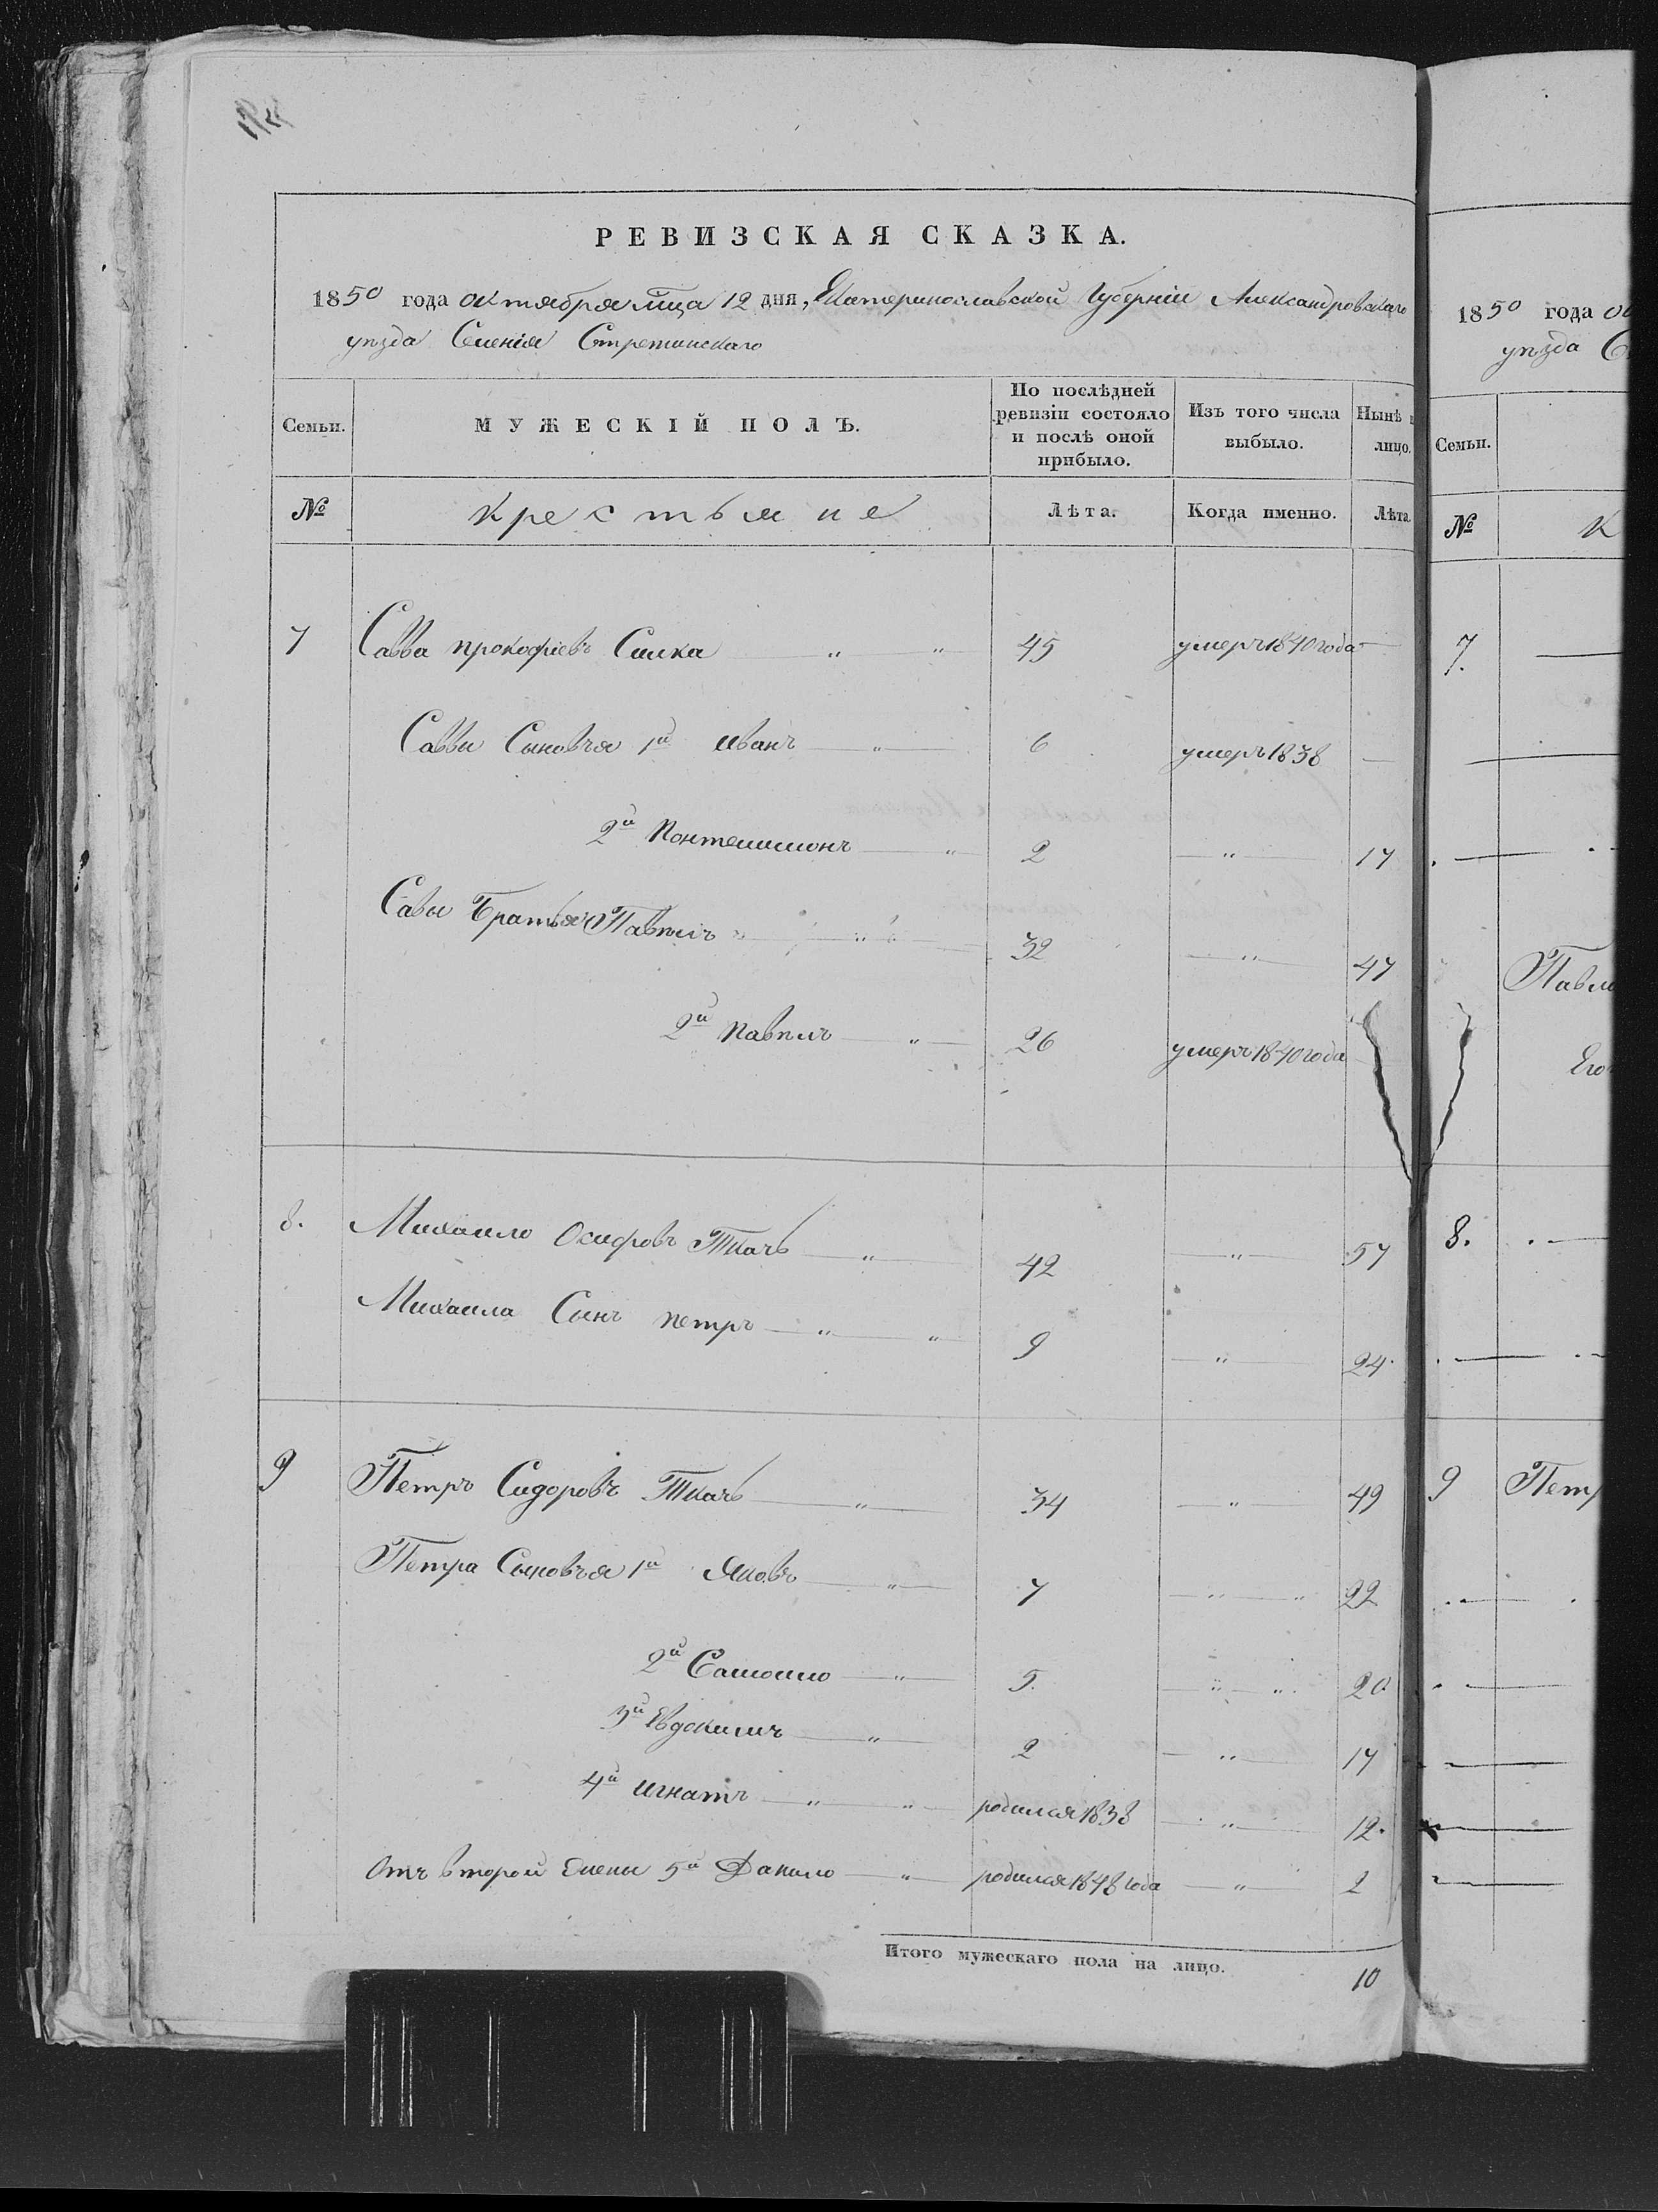 РЕВИЗСКАЯ СКАЗКА.
1850 года октября мца 12 дня, Екатеринославской Губерніи Александровскаго
уѣзда Селенія Стретинскаго
Семьи. МУЖЕСКІЙ ПОЛЪ. По послѣдней ревизіи состояло и послѣ оной прибыло. Изъ того числа выбыло. Нынѣ лицо.
№ крестьяне Лѣта. Когда именно. Лѣта
7 Савва прокофіевъ Силка „ „ 45 умеръ 1840 года —
Саввы Сыновъя 1й иванъ „ 6 умеръ 1838 —
2й Понтелимонъ „ 2 „ 17
Савы Братья Павелъ „ 32 „ 47
2й павелъ „ 26 умеръ 1840 года
8. Михаило Осифовъ Ткачь „ 42 „ 57
Михаила Сынъ петръ „ „ 9 „ 24.
9 Петръ Сидоровъ Ткачь „ 34 „ 49
Петра Сыновъя 1й Яковъ „ 7 „ „ 22
2й Самойло „ 5. „ „ 20
3й Евдокимъ „ 2 „ 17
4й игнатъ „ „ родился 1838 „ 12.
Отъ второй жены 5й Данило „ родился 1848 года „ 2
Итого мужескаго пола на лицо. 10
1850 года ок
уѣзда С
Семьи.
№ К
7.
Павл
Его
8.
9 Петр